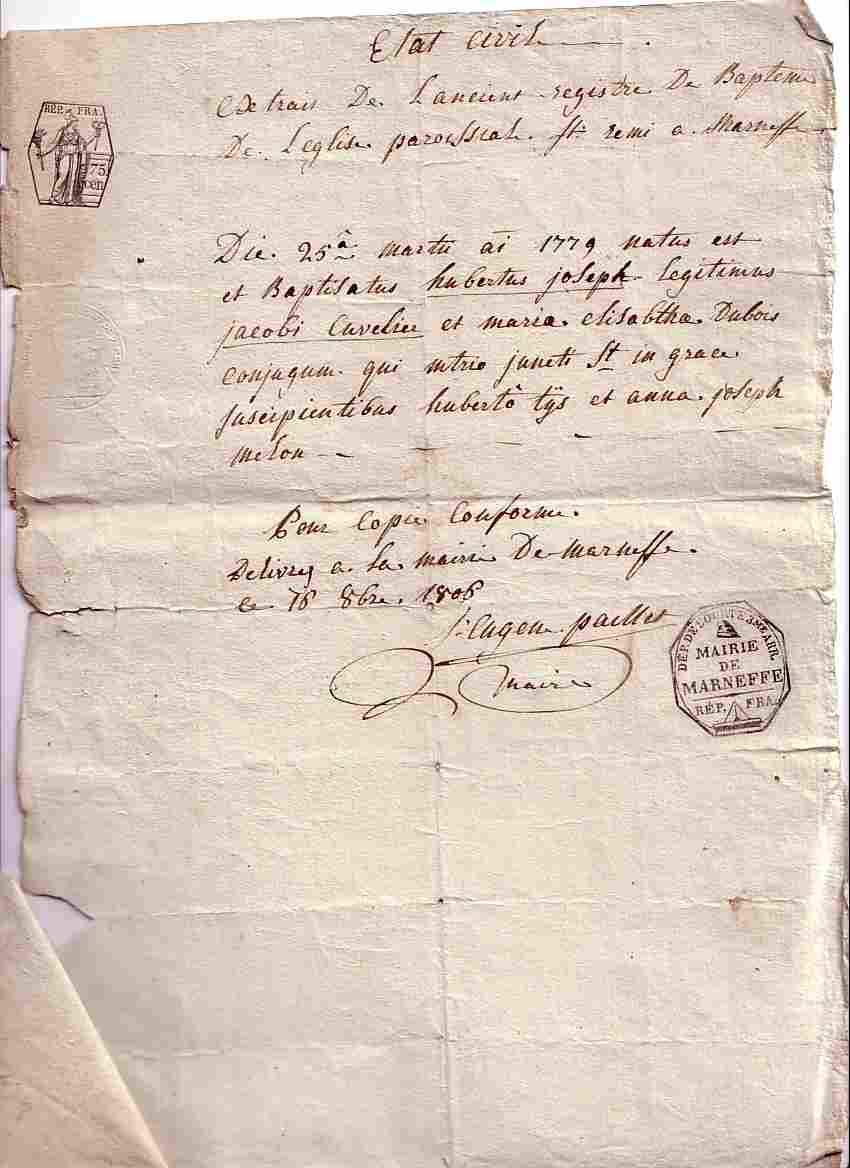 Etat civil
Extrait De Lanciens registre De Bapteme
De Leglise paroissial St. remi a Marneffe
RÉP. FRA.
75
cen
Die 25â martii ai 1779 natus est
et Baptisatus hubertus joseph legitimus
jacobi Cuvelier et maria elisabtha Dubois
conjugum qui mtrio juncti St in grace
suscipientibus hubertô tÿs et anna joseph
melon --
Pour Copie Conforme
Delivrez a la mairie De Marneffe
ce 16 8bre 1806
Eugene paillet
maire
DÉP. DE L'OURTE 3ME ARR.
MAIRIE
DE
MARNEFFE
RÉP. FRA.